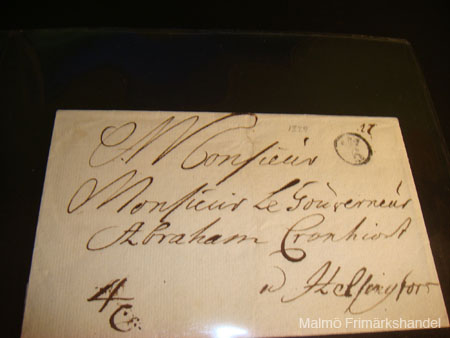 A Monsieur
Monsieur Le Gouverneur
Abraham Cronhiort
a Helsingfors
4
Malmö Frimärkshandel